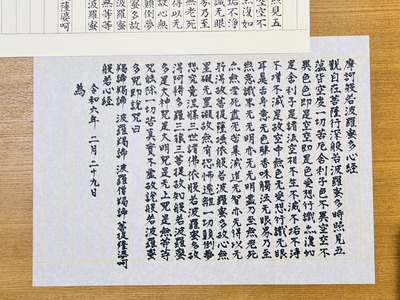 時照見五
空空不
亦復如
垢不浄
無眼
界乃至
無老死
得以無
故心無
顛倒夢
蜜多故
波羅蜜
無等等
波羅蜜
薩婆訶
摩訶般若波羅蜜多心経
観自在菩薩行深般若波羅蜜多時照見五
蘊皆空度一切苦厄舎利子色不異空空不
異色色即是空空即是色受想行識亦復如
是舎利子是諸法空相不生不滅不垢不浄
不増不減是故空中無色無受想行識無眼
耳鼻舌身意無色声香味触法無眼界乃至
無意識界無無明亦無無明尽乃至無老死
亦無老死尽無苦集滅道無智亦無得以無
所得故菩提薩埵依般若波羅蜜多故心無
罣礙無罣礙故無有恐怖遠離一切顛倒夢
想究竟涅槃三世諸仏依般若波羅蜜多故
得阿耨多羅三藐三菩提故知般若波羅蜜
多是大神呪是大明呪是無上呪是無等等
呪能除一切苦真実不虚故説般若波羅蜜
多呪即説呪曰
羯諦羯諦 波羅羯諦 波羅僧羯諦 菩提薩婆訶
般若心経
令和六年 二月二十九日
為